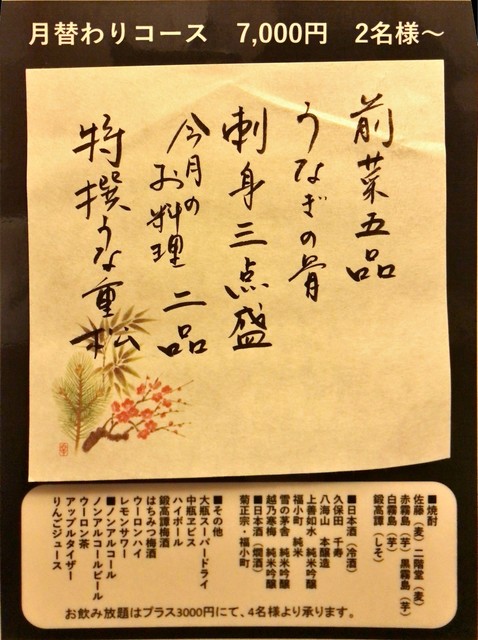 月替わりコース　7,000円　2名様～
前菜五品
うなぎの骨
刺身三点盛
今月の
お料理 二品
特撰うな重 松
■焼酎
佐藤（麦）二階堂（麦）
赤霧島（芋）
白霧島（芋）黒霧島（芋）
鍛高譚（しそ）
■日本酒（冷酒）
久保田　千寿
八海山　本醸造
上善如水　純米吟醸
福小町　純米
雪の茅舎　純米吟醸
越乃寒梅　純米吟醸
■日本酒（燗酒）
菊正宗・福小町
■その他
大瓶スーパードライ
中瓶ヱビス
ハイボール
鍛高譚梅酒
はちみつ梅酒
ウーロンハイ
レモンサワー
■ノンアルコール
ノンアルコールビール
ウーロン茶
アップルタイザー
りんごジュース
お飲み放題はプラス3000円にて、4名様より承ります。